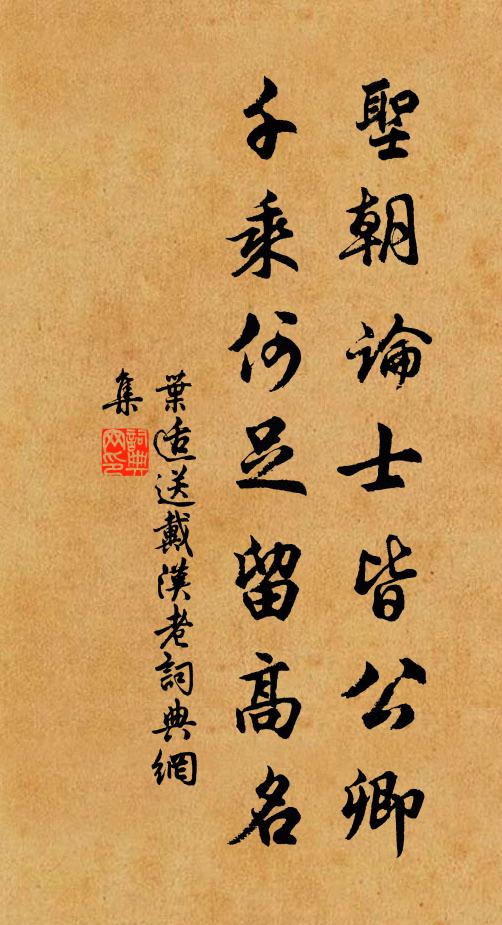 聖朝論士皆公卿
千乘何足留高名
葉适送戴漢老詞典網
集
詞典
网印